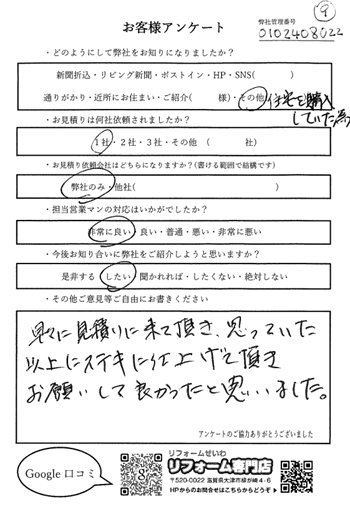 ⑨
お客様アンケート
弊社管理番号
0102408022
・どのようにして弊社をお知りになりましたか？
新聞折込・リビング新聞・ポストイン・HP・SNS(　　　)
通りがかり・近所にお住まい・ご紹介(　　　様)・その他 住宅を購入
していた為
・お見積りは何社依頼されましたか？
1社・2社・3社・その他　(　　　社)
・お見積り依頼会社はどちらになりますか？(書ける範囲で結構です)
弊社のみ・他社(　　　)
・担当営業マンの対応はいかがでしたか？
非常に良い・良い・普通・悪い・非常に悪い
・今後お知り合いに弊社をご紹介しようと思いますか？
是非する・したい・聞かれれば・したくない・絶対しない
・その他ご意見等ご自由にお書きください
早々に見積りに来て頂き、思っていた
以上にステキに仕上げて頂き
お願いして良かったと思いました。
アンケートのご協力ありがとうございました
Google 口コミ
リフォームせいわ
リフォーム専門店
〒520-0022 滋賀県大津市柳が崎4-6
HPからのお問合せはこちらからどうぞ